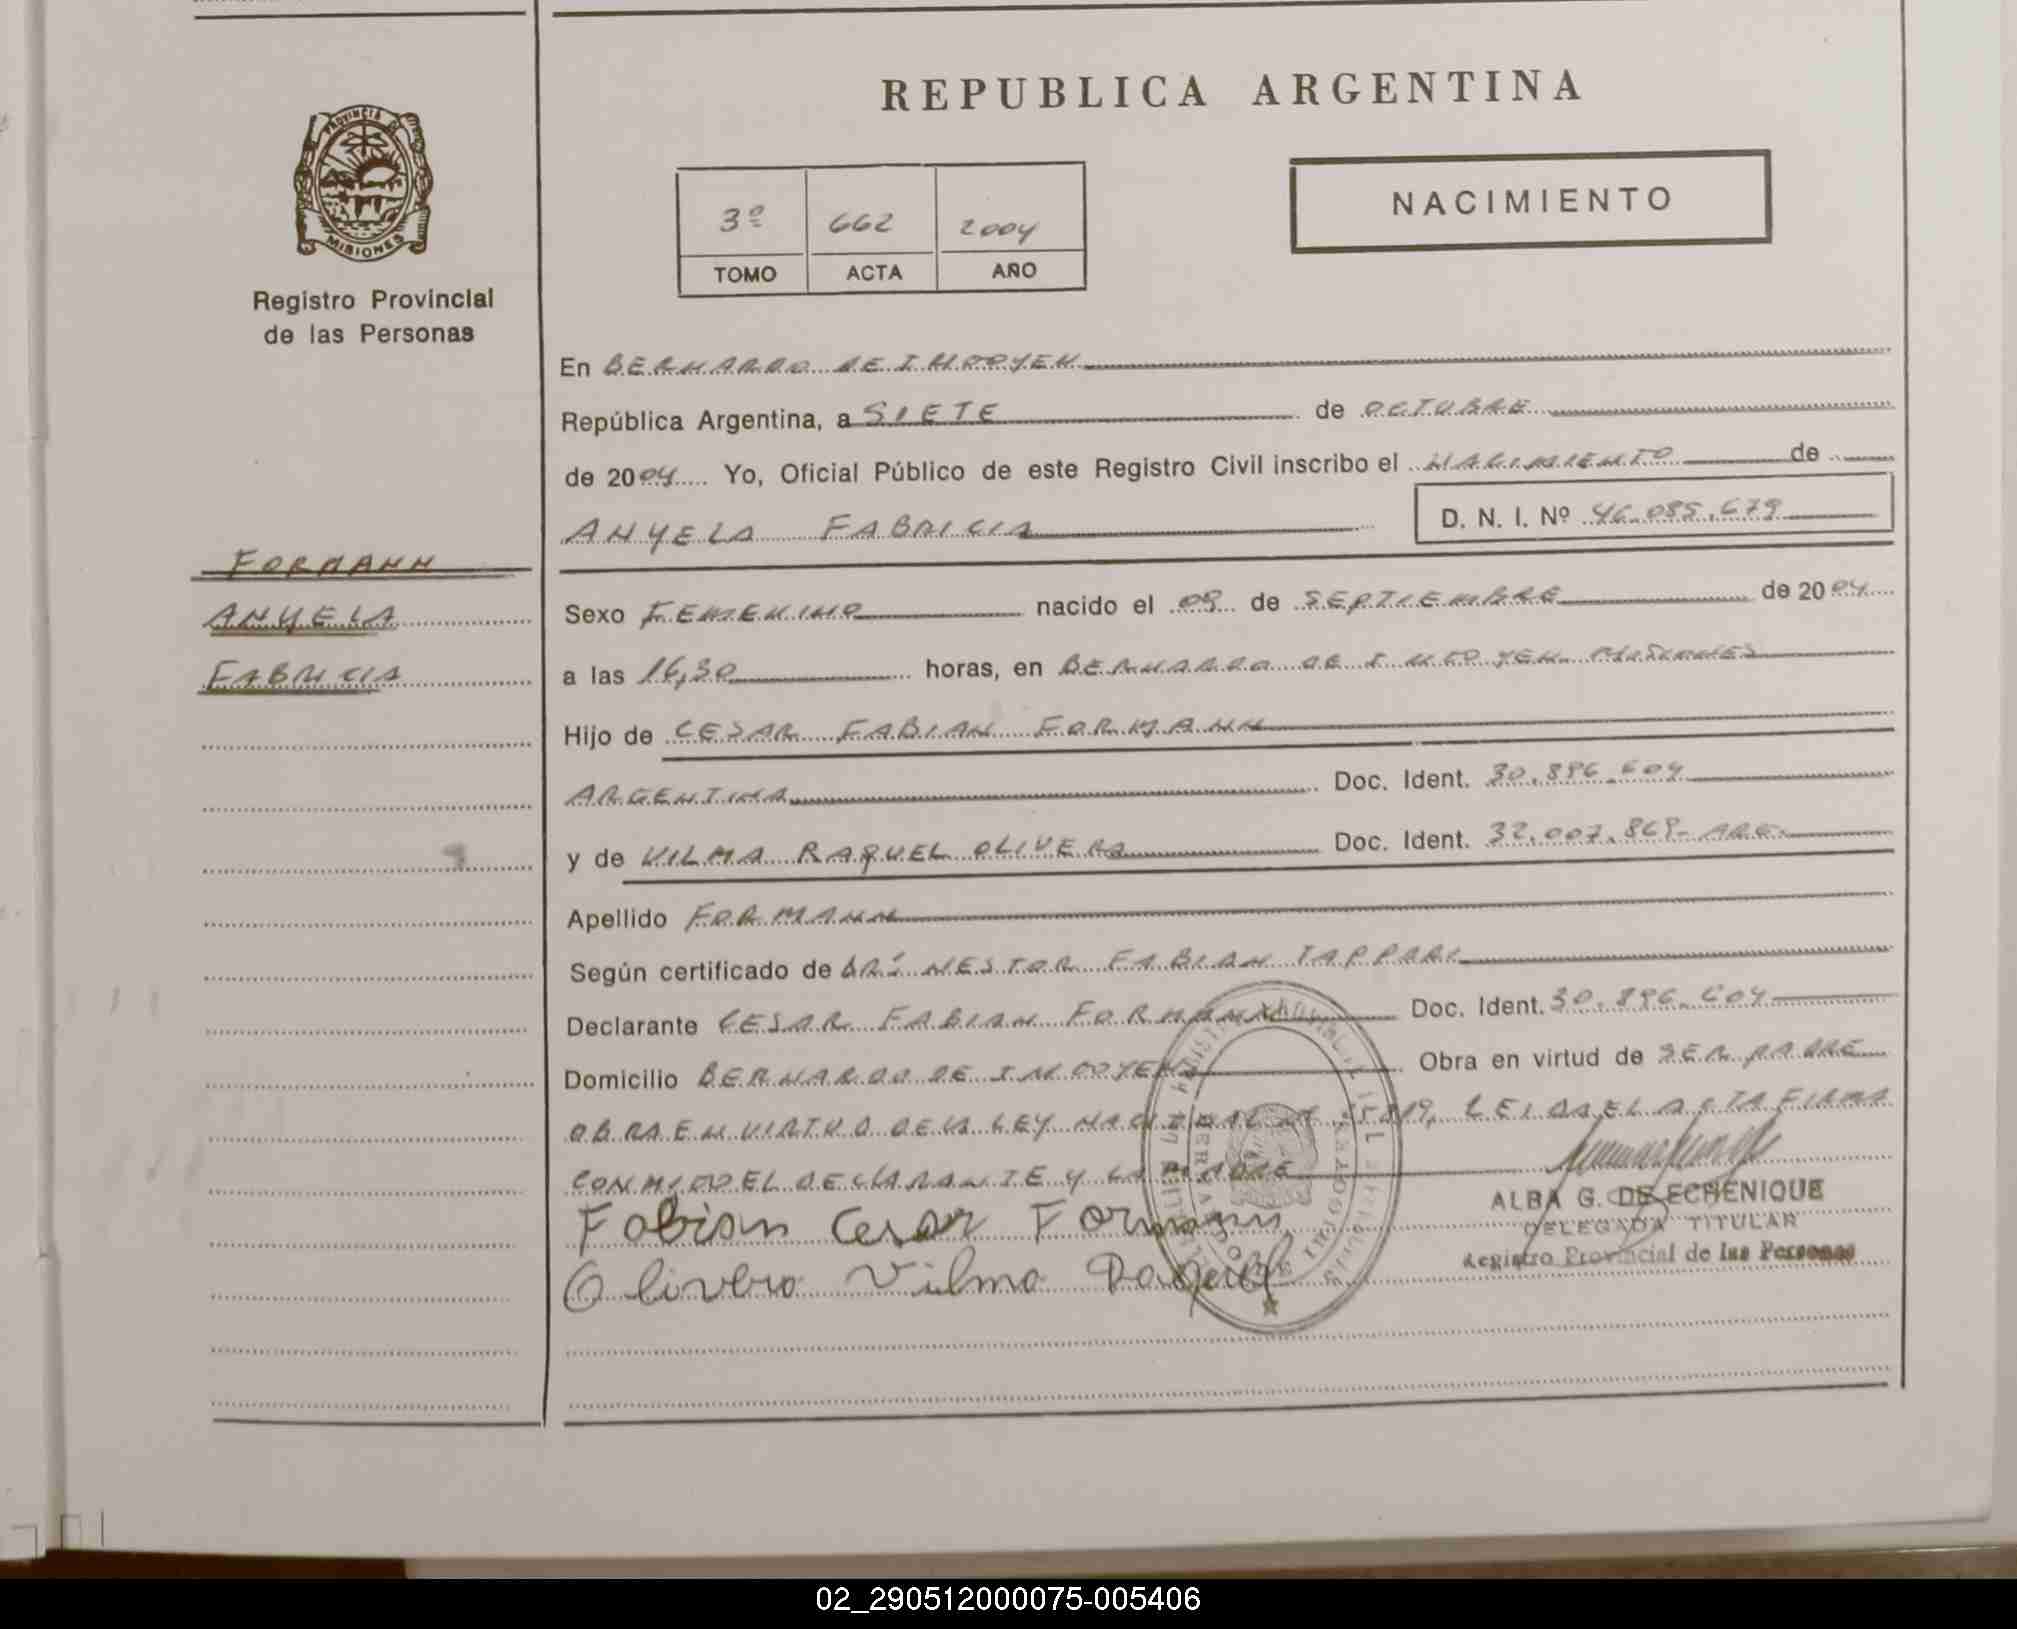 REPUBLICA ARGENTINA
PROVINCIA DE
MISIONES
Registro Provincial
de las Personas
3º 662 2004
TOMO ACTA AÑO
NACIMIENTO
En BERNARDO DE IRIGOYEN
República Argentina, a SIETE de OCTUBRE
de 2004 Yo, Oficial Público de este Registro Civil inscribo el NACIMIENTO de
ANYELA FABRICIA
D. N. I. Nº 46.085.679
FORMANN
ANYELA
FABRICIA
Sexo FEMENINO nacido el 09 de SEPTIEMBRE de 2004
a las 16,30 horas, en BERNARDO DE IRIGOYEN. MISIONES
Hijo de CESAR FABIAN FORMANN
ARGENTINA Doc. Ident. 30.896.604
y de VILMA RAQUEL OLIVERA Doc. Ident. 32.007.869- ARG.
Apellido FORMANN
Según certificado de DR: NESTOR FABIAN TAPPARI
Declarante CESAR FABIAN FORMANN Doc. Ident. 30.896.604
Domicilio BERNARDO DE IRIGOYEN Obra en virtud de SER PADRE
OBRA EN VIRTUD DE LA LEY NACIONAL Nº LEIDA EL ACTA FIRMA
CONMIGO EL DECLARANTE Y LA MADRE
Fabian Cesar Formann
Olivera Vilma Raquel
ALBA G. DE ECHENIQUE
DELEGADA TITULAR
Registro Provincial de las Personas
02_290512000075-005406